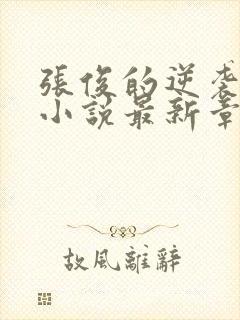 張俊的逆袭
小説最新章
故風離辭